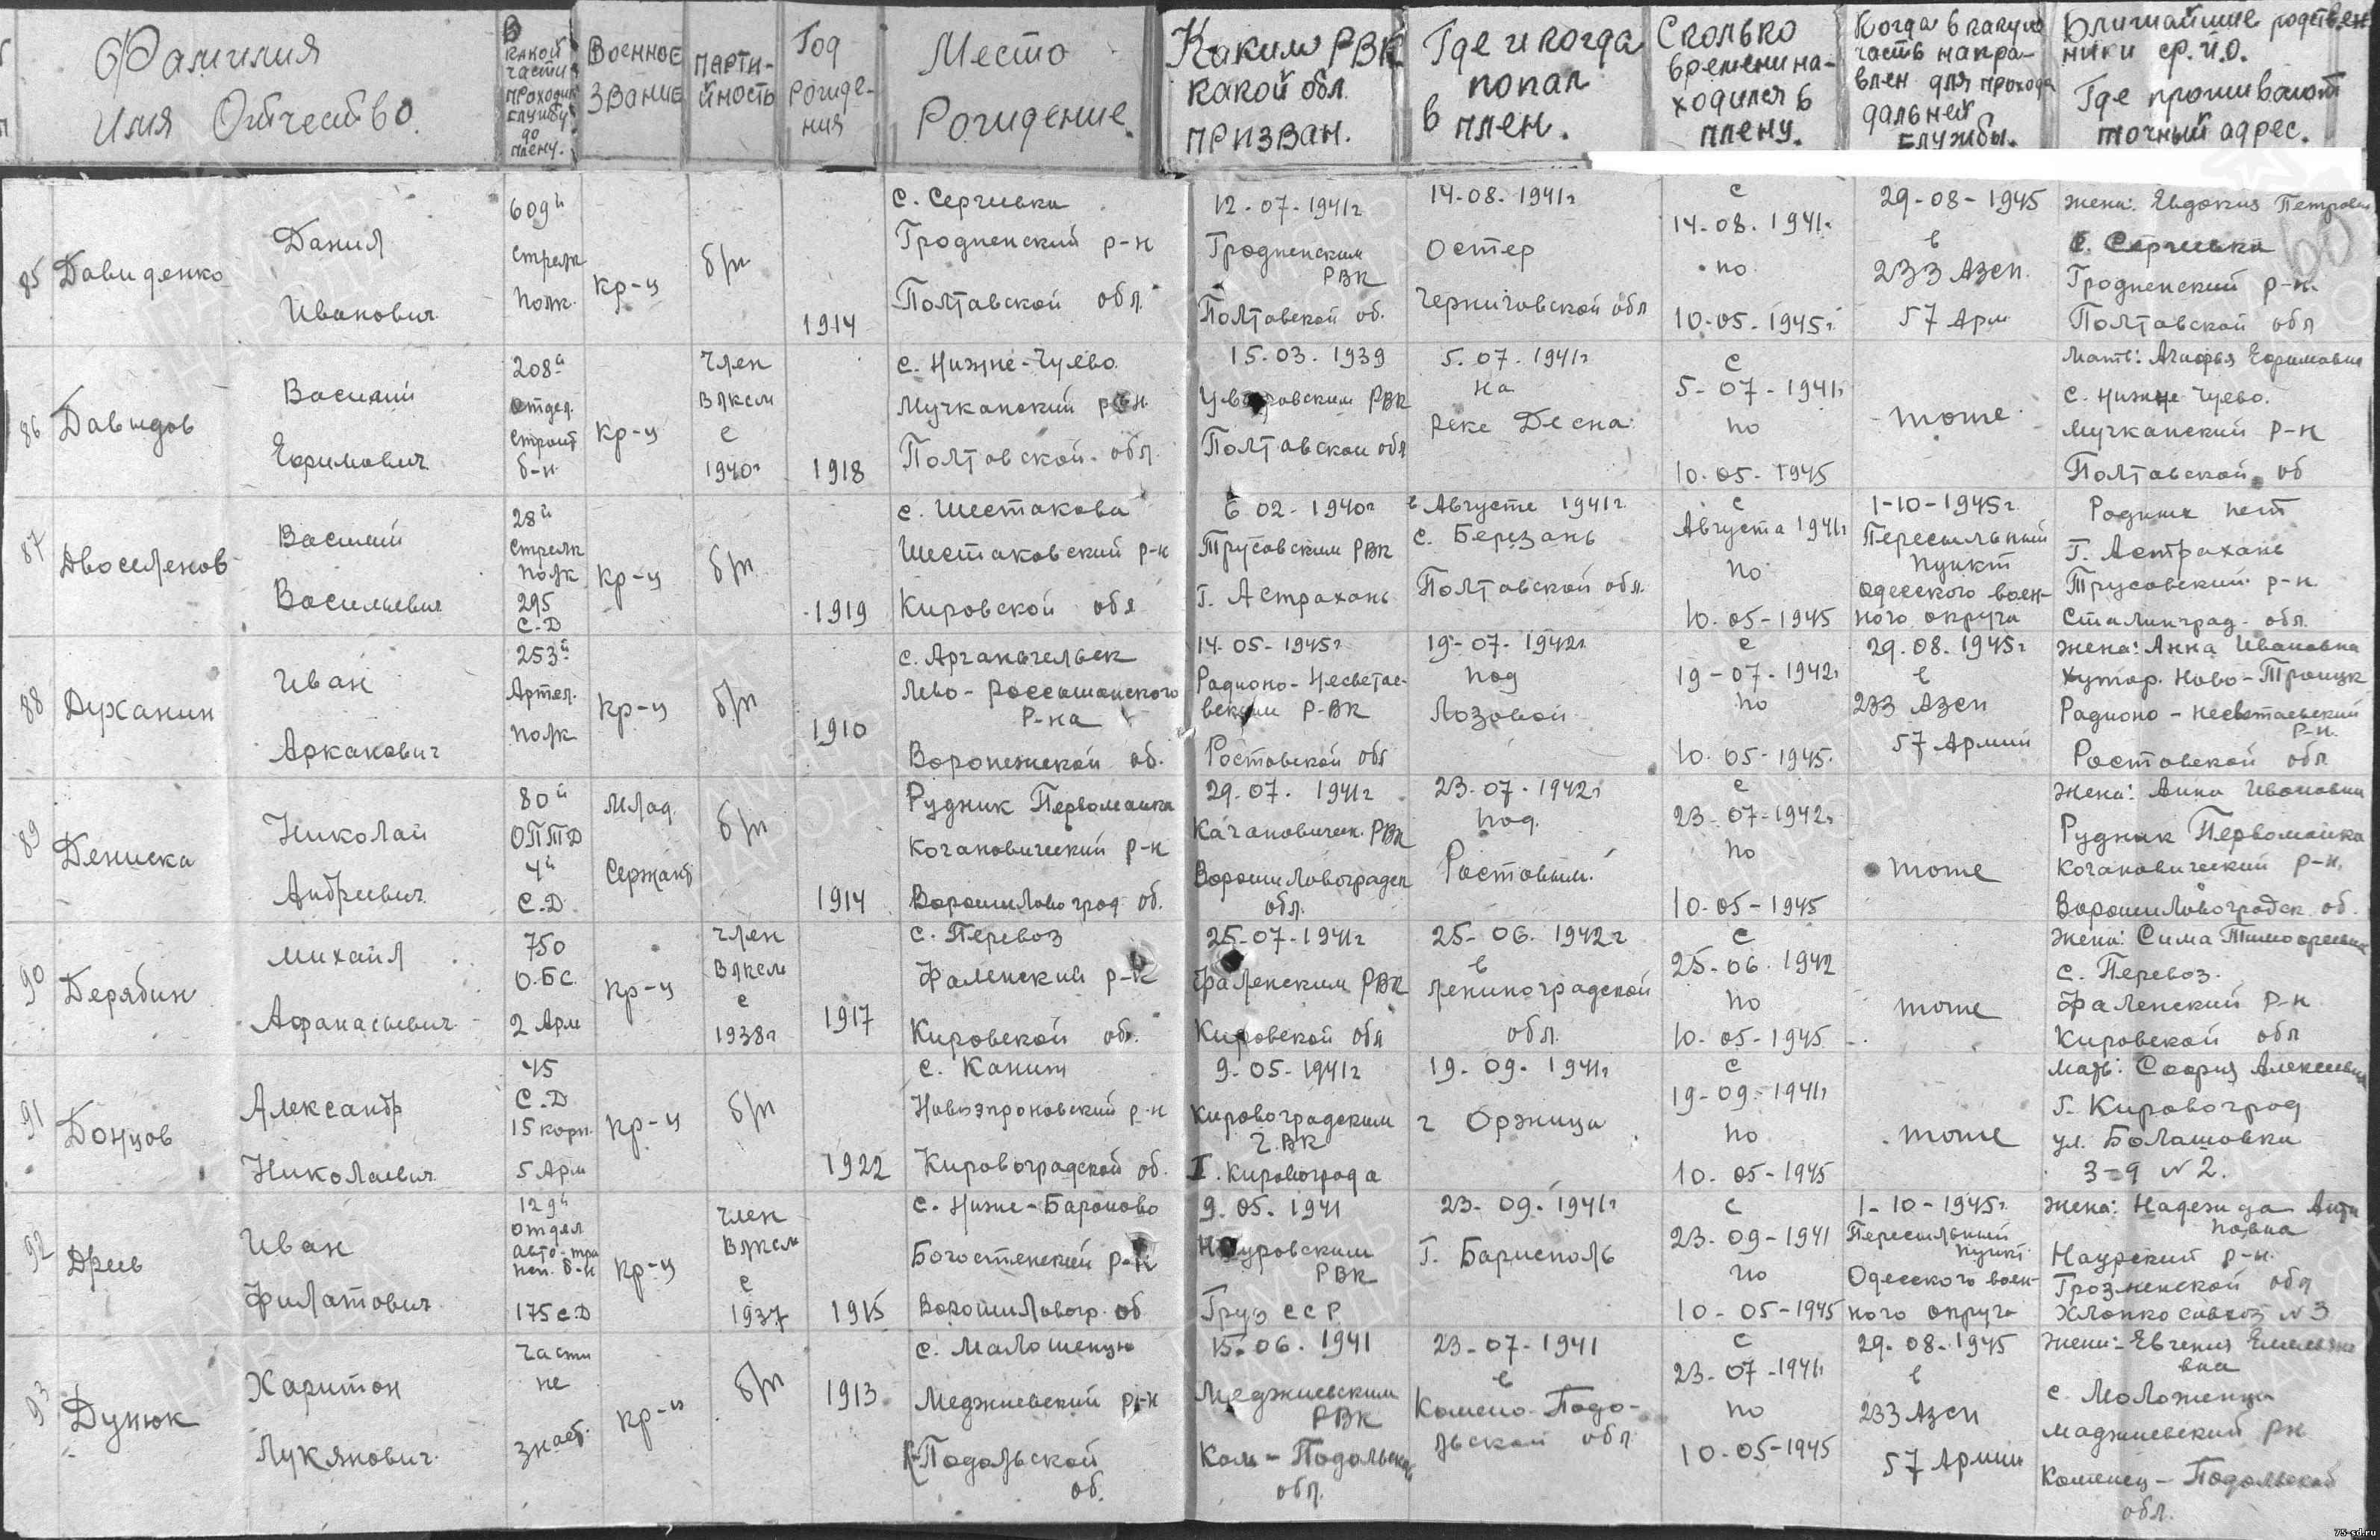 Фамилия
Имя Отчество.
В какой части проходил службу до плену.
Военное звание
Парти-йность
Год рождения
Место Рождение.
Каким РВК какой обл. призван.
Где и когда попал в плен.
Сколько времени находился в плену.
Когда в какую часть направлен для прохода дальней службы.
Ближайшие родственники ф.и.о. Где проживают точный адрес.
85 Давиденко
Данил
Иванович
609й
стрелк
полк.
кр-ц
б/п
1914
с. Сергиевка
Гродненский р-н
Полтавской обл.
12-07-1941г
Гродненским
РВК
Полтавской об.
14-08. 1941г
Остер
Черниговской обл
с
14-08. 1941.
по
10-05-1945г
29-08-1945
в
233 Азсп.
57 Арм
жена: Евдокия Петровна
с. Сергиевка
Гродненский р-н.
Полтавской обл
86 Давидов
Василий
Ефимович
208й
отдел.
строит
б-н
кр-ц
член
ВЛКСМ
с
1940г
1918
с. Нижне-Чуево.
Мучкапский р-н
Полтавской-обл
15.03.1939
Уваровским РВК
Полтавской обл
5.07.1941г
на
реке Десна
с
5-07-1941г
по
10-05-1945
тоже
мать: Агафья Ефимовна
с. Нижне Чуево.
Мучкапский р-н
Полтавской об
87 Двоеленов
Василий
Васильевич
28й
стрелк
полк
295
с.д
кр-ц
б/п
1919
с. Шестакова
Шестаковский р-н
Кировской обл
6 02-1940г
Трусовским РВК
Г. Астрахань
в Августе 1941г.
с. Березань
Полтавской обл.
с
Августа 1941г
по
10-05-1945
1-10-1945г
Пересыльный
пункт
Одесского воен-
ного округа
Родных нет
Г. Астрахань
Трусовский р-н
Сталинград. обл.
88 Духанин
Иван
Арканович
253й
Артел.
полк
кр-ц
б/п
1910
с. Арганьгельск
Лево-россошанского
р-на
Воронежской об.
14-05-1945г
Радионо-Несветае-
вским Р-ВК
Ростовской обл
19-07-1942г
под
Лозовой
с
19-07-1942г
по
10-05-1945.
29.08.1945г
в
233 Азсп
57 Армии
жена: Анна Ивановна
хутор. Ново-Троицк
Радионо-несветаевский
р-н.
Ростовской обл
89 Дениска
Николай
Андреевич
80й
ОПТД
4й
с.д
Млад.
Сержант
б/п
1914
Рудник Первомайка
Когановический р-н
Ворошиловоград об.
29.07.1941г
Качановическ. РВК
Ворошиловоградск
обл.
23-07-1942г
под
Ростовым.
с
23-07-1942г
по
10-05-1945
тоже
жена: Анна Ивановна
Рудник Первомайка
Когановический р-н.
Ворошиловоградск об.
90 Дерябин
михаил
Афанасьевич
750
О.Б.С.
2 Арм
кр-ц
член
ВЛКСМ
с
1938г
1917
с. Перевоз
Фаленский р-н
Кировской об.
25-07-1941г
Фаленским РВК
Кировской обл
25-06. 1942г
в
Лениноградской
обл.
с
25-06. 1942
по
10-05-1945
тоже
жена: Сима Тимофеевна
с. Перевоз.
Фаленский р-н
Кировской обл
91 Донцов
Александр
Николаевич
45
с.д
15 корп.
5 Арм
кр-ц
б/п
1922
с. Каниж
Кировоградской об.
9-05-1941г
Кировоградским
Г.ВК
Г. Кировограда
19.09.1941г
г Оржица
с
19-09-1941г
по
10-05-1945
тоже
мать: София Алексеевна
г. Кировоград
ул. Болашовка
3-9 №2.
92 Дреев
Иван
Филатович
129й
отдел
175 с.д
кр-ц
член
ВЛКСМ
с
1937
1915
с. Ниже-Бараново
Ворошиловогр. об
9.05.1941
Науровским
РВК
Груз ССР
23-09-1941г
Г. Борисполь
с
23-09-1941
по
10-05-1945
1-10-1945г
Пересыльный
пункт
Одесского воен-
ного округа
жена: Надежда Анти
повна
Наурский р-н.
Грозненской обл
Хлопкосовхоз №3
93 Дунюк
Харитон
Лукянович.
части
не
знает.
кр-ц
б/п
1913
с. Маломенцы
Меджиевский р-н
К-Подольской
об.
15-06.1941
Меджиевским
РВК
Кам-Подольской
обл.
23-07-1941
в
Камено-Подо-
льской обл
с
23-07-1941г
по
10-05-1945
29-08-1945
в
233 Азсп
57 Армии
жена: Евгения Емельяно
вна
с. Моложенца
маджиевский рн
Каменец-Подольской
обл.
75-sd.ru